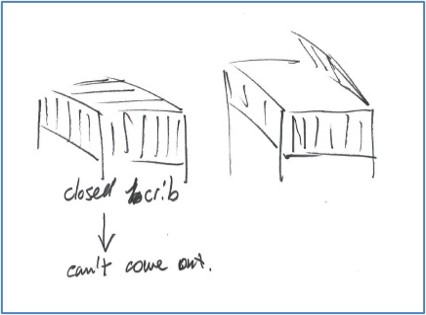 closed crib
can't come out.